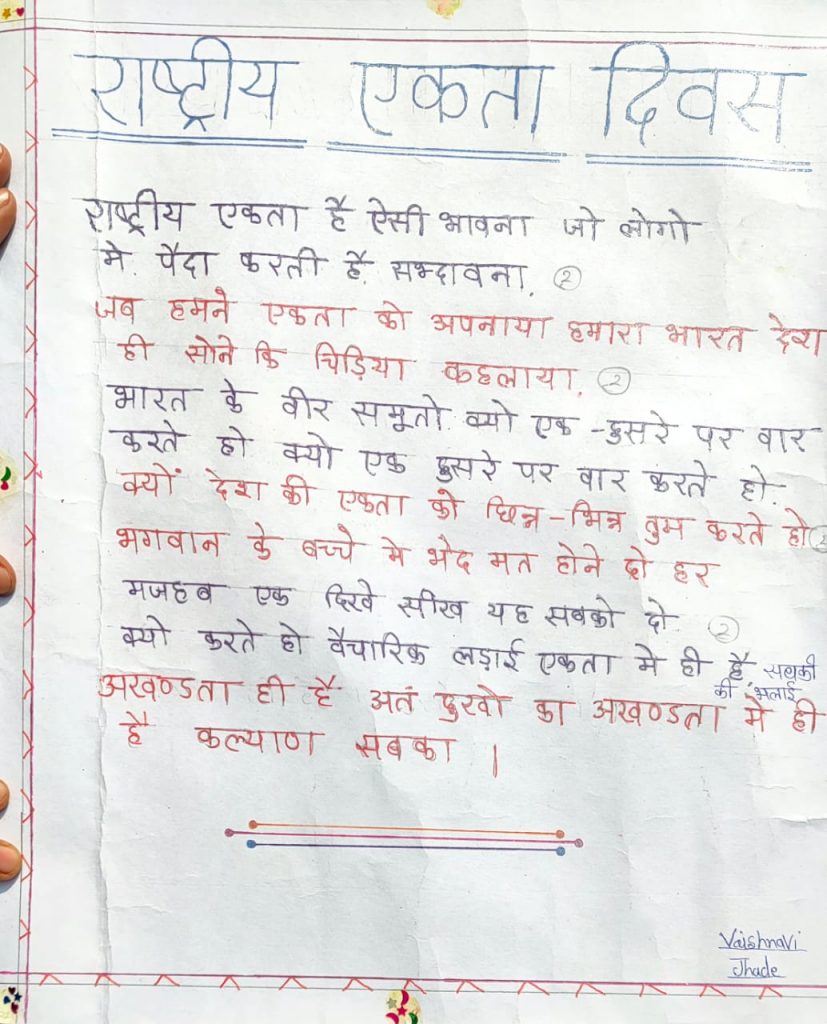 राष्ट्रीय एकता दिवस
राष्ट्रीय एकता है ऐसी भावना जो लोगो
मे. पैदा करती है. सभ्दावना. (2)
जब हमने एकता को अपनाया हमारा भारत देश
ही सोने कि चिड़िया कहलाया. (2)
भारत के वीर समूतो. क्यो एक -दुसरे पर वार
करते हो क्यो एक दुसरे पर वार करते हो.
क्यों देश की एकता को छिन्न-भिन्न तुम करते हो (2)
भगवान के बच्चे मे भेद मत होने दो हर
मजहब एक दिखे सीख यह सबको दो. (2)
क्यो करते हो वैचारिक लड़ाई एकता मे ही है. सबकी
की भलाई
अखण्डता ही है अतं दुखो का अखण्डता मे ही
है कल्याण सबका ।
Vaishnavi
Jhade